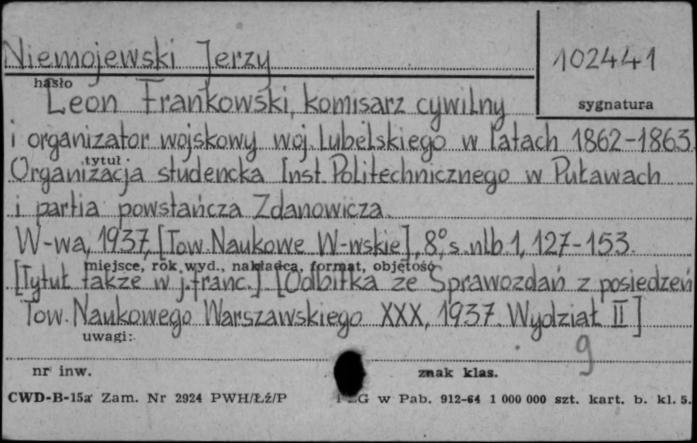 Niemojewski Jerzy
102441
hasło
sygnatura
Leon Frankowski, komisarz cywilny
i organizator wojskowy woj. Lubelskiego w latach 1862-1863.
tytuł
Organizacja studencka Inst. Politechnicznego w Puławach
i partia powstańcza Zdanowicza.
W-wa, 1937, [Tow. Naukowe W-wskie], 8°, s. nlb 1, 127-153.
miejsce, rok wyd., nakładca, format, objętość
[Tytuł także w j. franc.]. [Odbitka ze Sprawozdań z posiedzeń
Tow. Naukowego Warszawskiego XXX, 1937. Wydział II]
uwagi:
9
nr inw.
znak klas.
CWD-B-15a Zam. Nr 2924 PWH/Łź/P
w Pab. 912-64 1 000 000 szt. kart. b. kl. 5.